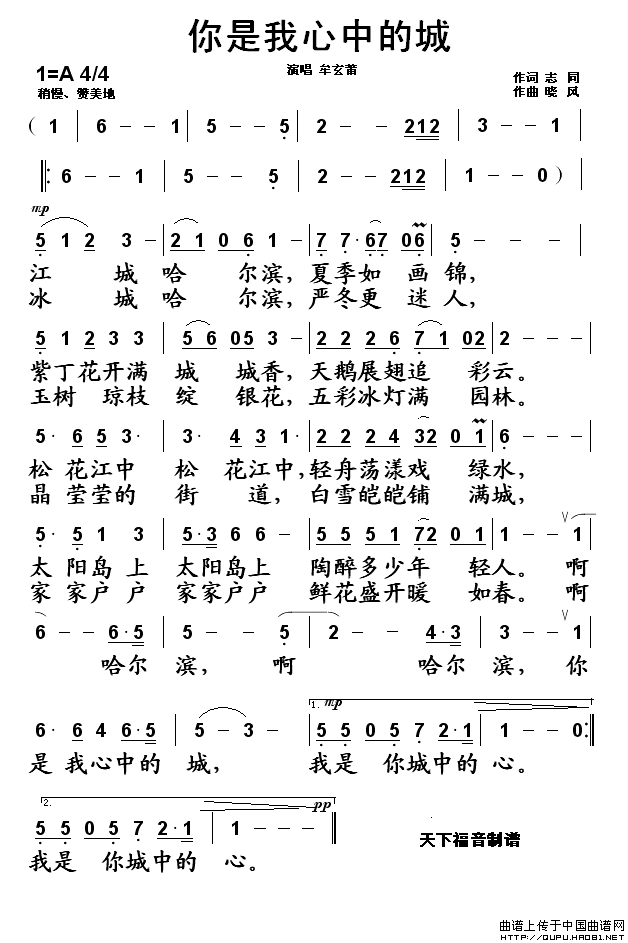 你是我心中的城
1=A 4/4
演唱 牟玄莆
作词 志 同
稍慢、赞美地
作曲 晓 风
( 1 | 6 - - 1 | 5 - - 5 | 2 - - 212 | 3 - - 1 |
‖: 6 - - 1 | 5 - - 5 | 2 - - 212 | 1 - - 0 ) |
mp
5 1 2 3 - | 2 1 0 6 1 - | 7 7· 67 06 | 5 - - - |
江 城 哈 尔滨，夏季如 画锦，
冰 城 哈 尔滨，严冬更 迷人，
5 1 2 3 3 | 5 6 05 3 - | 2 2 2 6 7 1 02 | 2 - - - |
紫丁花开满 城 城香，天鹅展翅追 彩云。
玉树 琼枝 绽 银花，五彩冰灯满 园林。
5· 6 5 3· | 3· 4 3 1· | 2 2 2 4 32 0 1 | 6 - - - |
松 花江中 松 花江中，轻舟荡漾戏 绿水，
晶 莹莹的 街 道，白雪皑皑铺 满城，
5· 5 1 3 | 5·3 6 6 - | 5 5 5 1 72 0 1 | 1 - - 1 |
太 阳岛 上 太阳岛上 陶醉多少年 轻人。啊
家 家户 户 家家户户 鲜花盛开暖 如春。啊
6 - - 6·5 | 5 - - 5 | 2 - - 4·3 | 3 - - 1 |
哈尔 滨， 啊 哈尔 滨，你
1. mp
6· 6 4 6·5 | 5 - 3 - | 5 5 0 5 7 2·1 | 1 - - 0 :‖
是 我心中的 城， 我是 你城中的 心。
2. pp
5 5 0 5 7 2·1 | 1 - - - ‖
我是 你城中的 心。
天下福音制谱
曲谱上传于中国曲谱网
HTTP://QUPU.HAO81.NET